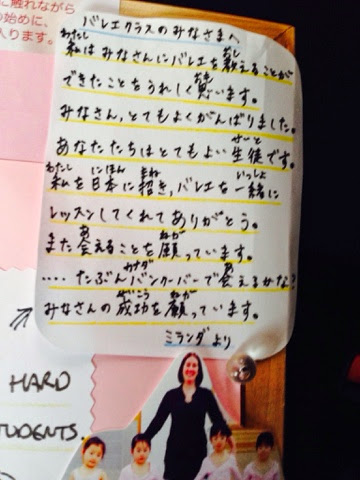 に触れながら
の始めに、
入ります。
バレエクラスのみなさまへ
わたし おし
私はみなさんにバレエを教えることが
おも
できたことをうれしく思います。
みなさん,とてもよくがんばりました。
せーと
あなたたちはとてもよい生徒です。
わたし にほん まね いっしょ
私を日本に招き,バレエを一緒に
レッスンしてくれてありがとう。
あ ねが
また会えることを願っています。
カナダ あ
....たぶんバンクーバーで会えるかな?
せいこう ねが
みなさんの成功を願っています。
ミランダより
HARD
TUDENTS.